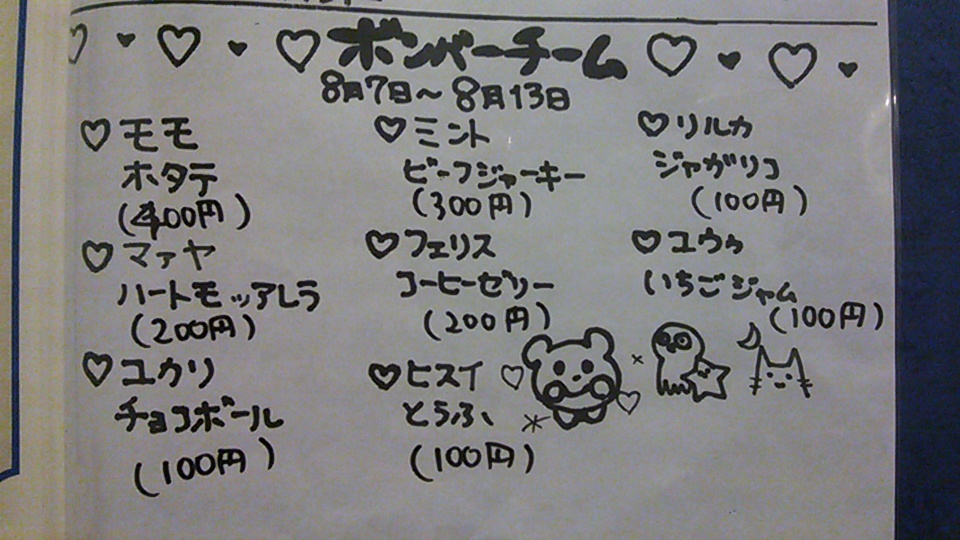 ボンバーチーム
8月7日～8月13日
♡モモ
ホタテ
(400円)
♡マァヤ
ハートモッアレラ
(200円)
♡ユカリ
チョコボール
(100円)
♡ミント
ビーフジャーキー
(300円)
♡フェリス
コーヒーゼリー
(200円)
♡ヒスイ
とうふ
(100円)
♡リルカ
ジャガリコ
(100円)
♡ユウゥ
いちごジャム
(100円)